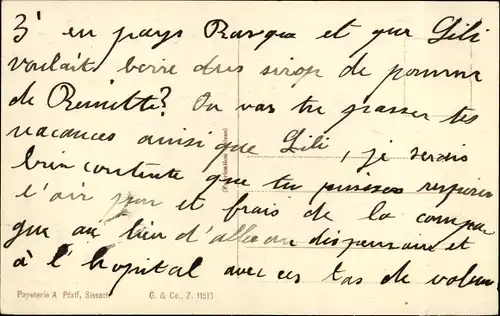 3 en pays Basque et que Lili
voulait boire des sirop de pomme
de Reinette? Ou vas tu passer tes
vacances ainsi que Lili, je serais
bien contente que tu puisses respirer
l'air pur et frais de la campa
gne au lieu d'aller au dispensaire et
à l'hopital avec ces tas de
Papeterie A Pfaff, Sissach G. & Co., Z. 11513